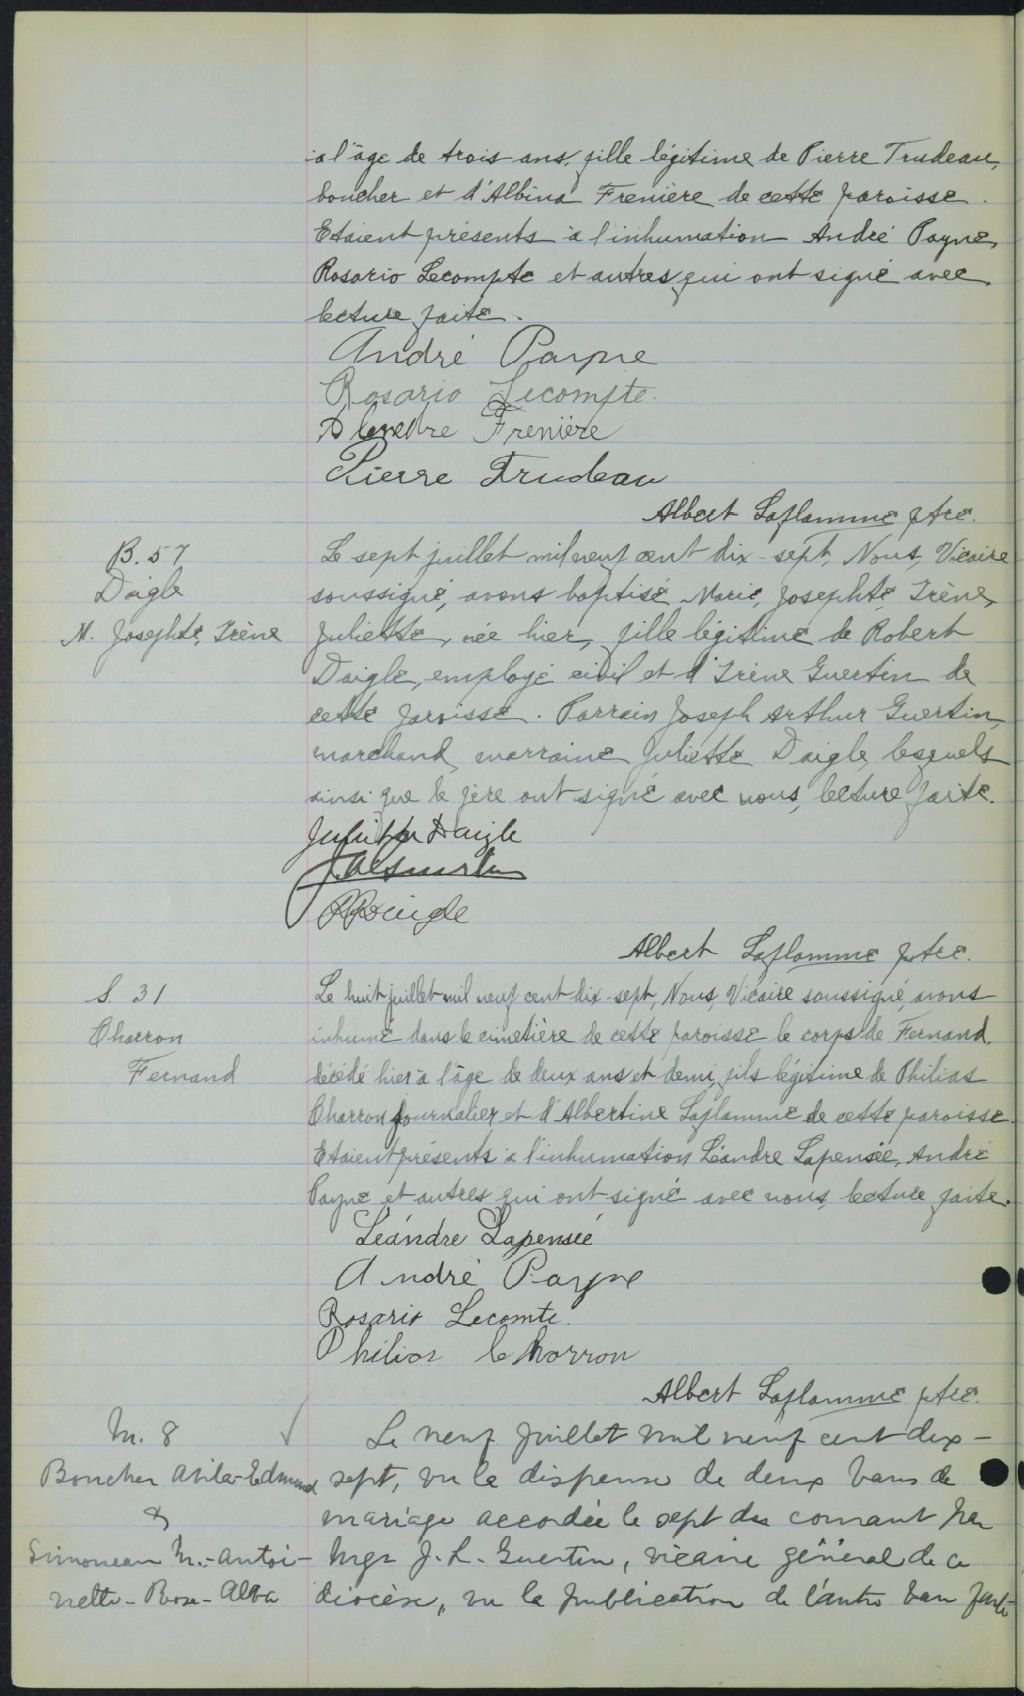 à l'âge de trois ans, fille légitime de Pierre Trudeau,
boucher et d'Albina Frenière de cette paroisse.
Etaient présents à l'inhumation André Payne,
Rosario Lecompte et autres qui ont signé avec
lecture faite.
André Payne
Rosario Lecompte.
Frenière
Pierre Trudeau
Albert Laflamme ptre.
B. 57
Daigle
M. Josephte, Irène
Le sept juillet mil neuf cent dix-sept, Nous, Vicaire
soussigné, avons baptisé Marie, Josephte, Irène,
Juliette, née hier, fille légitime de Robert
Daigle, employé civil et d'Irène Guertin de
cette paroisse. Parrain Joseph Arthur Guertin,
marchand, marraine Juliette Daigle, lesquels
ainsi que le père ont signé avec nous, lecture faite.
Juliette Daigle
J. A. Guertin
R Daigle
Albert Laflamme ptre.
S. 31
Charron
Fernand
Le huit juillet mil neuf cent dix-sept, Nous, Vicaire soussigné, avons
inhumé dans le cimetière de cette paroisse le corps de Fernand,
décédé hier à l'âge de deux ans et demi, fils légitime de Philias
Charron journalier et d'Albertine Laflamme de cette paroisse.
Etaient présents à l'inhumation Léandre Lapensée, André
Payne, et autres qui ont signé avec nous, lecture faite.
Léandre Lapensée
André Payne
Rosario Lecomte.
Philias Charron
Albert Laflamme ptre.
M. 8
Boucher Avila-Edmond
&
Simoneau M.-Antoi-
nette-Rose-Alba
Le neuf juillet mil neuf cent dix-
sept, vu la dispense de deux bans de
mariage accordée le sept du courant par
Mgr J. L. Guertin, vicaire général de ce
diocèse, vu la publication de l'autre ban faite